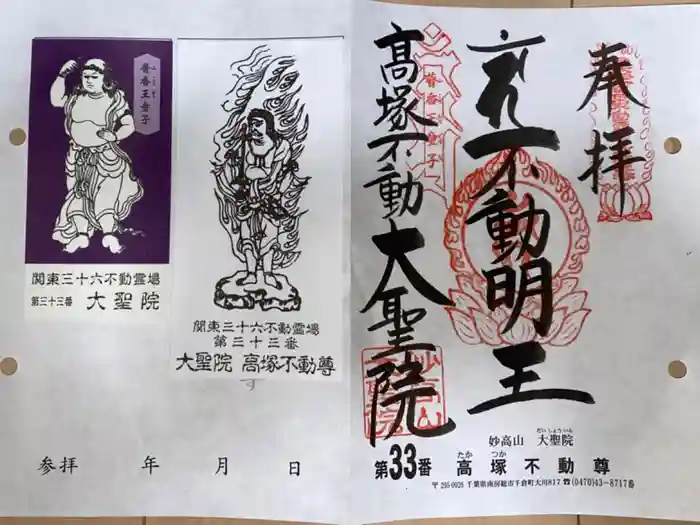 普香王童子
関東三十六不動霊場
第三十三番 大聖院
関東三十六不動霊場
第三十三番
大聖院 高塚不動尊
参拝 年 月 日
奉拝
不動明王
高塚不動
大聖院
普香王童子
妙高山 大聖院
だいしょういん
たか つか
第33番 高塚不動尊
〒295-0026 千葉県南房総市千倉町大川817 ☎(0470)43-8717番